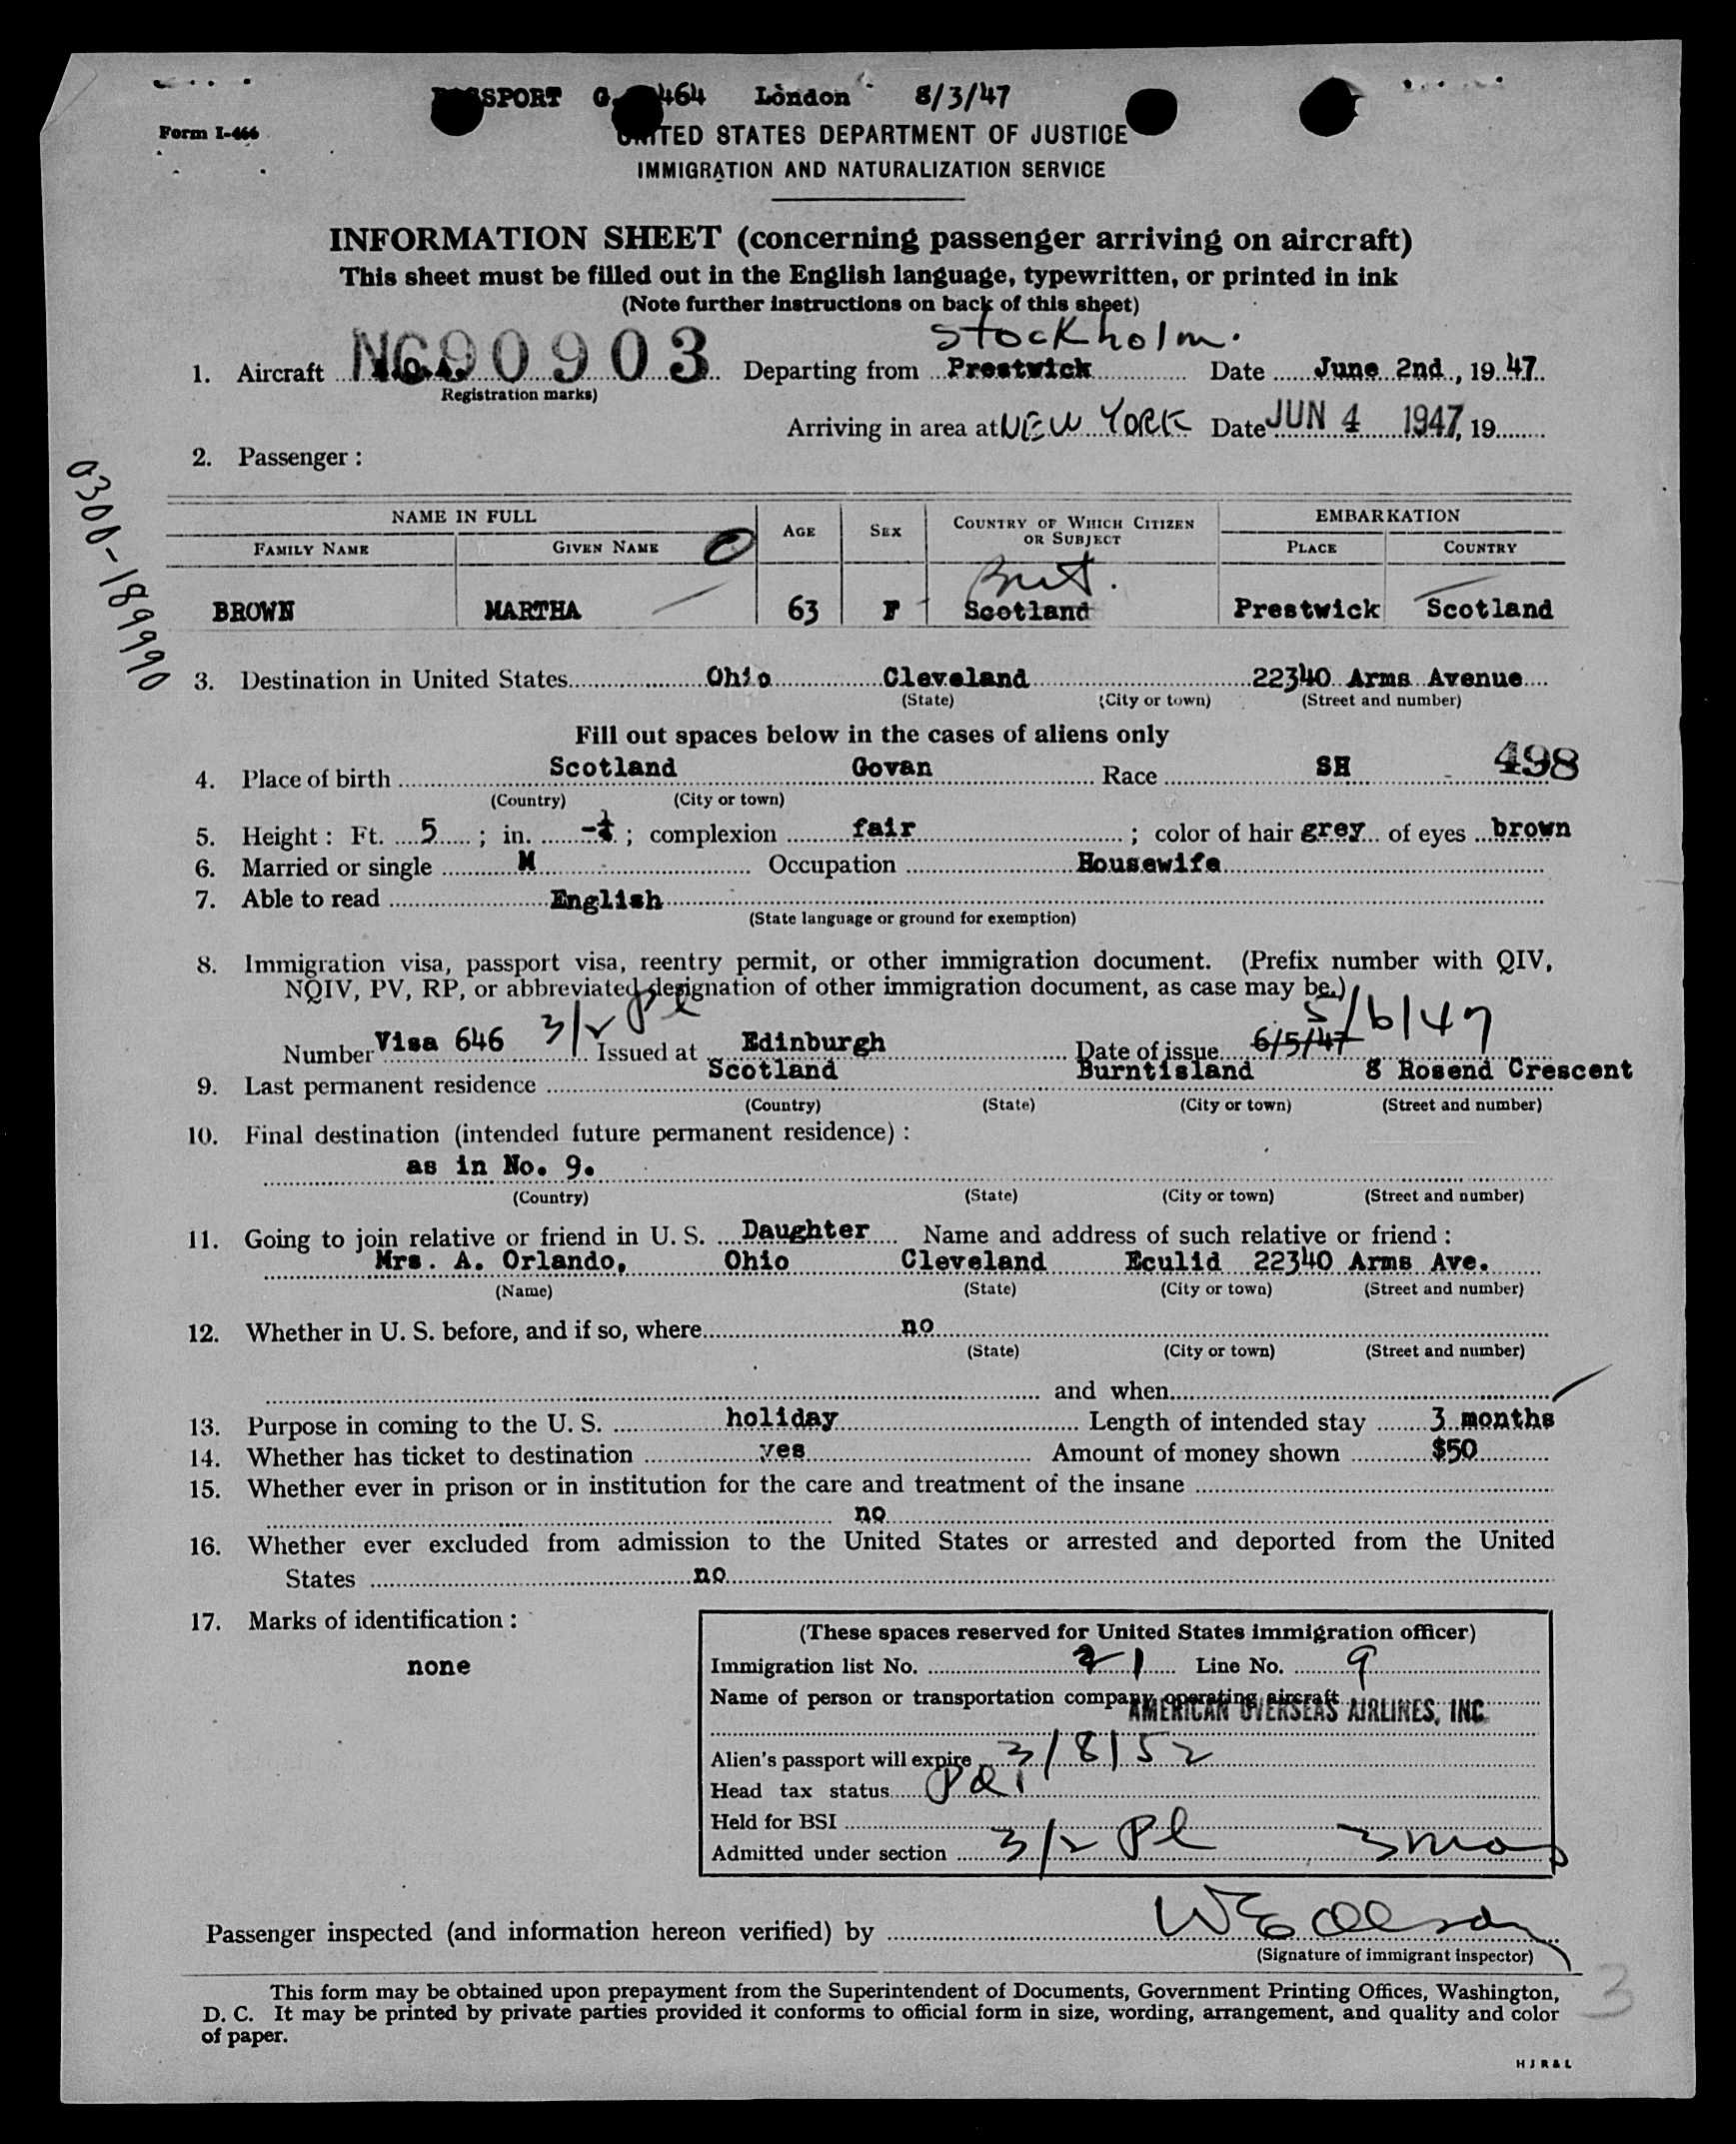 PASSPORT G 464 London 8/3/47
Form I-466
UNITED STATES DEPARTMENT OF JUSTICE
IMMIGRATION AND NATURALIZATION SERVICE
INFORMATION SHEET (concerning passenger arriving on aircraft)
This sheet must be filled out in the English language, typewritten, or printed in ink
(Note further instructions on back of this sheet)
Stockholm.
1. Aircraft NC90903 Departing from Prestwick Date June 2nd, 1947.
(Registration marks)
Arriving in area at NEW YORK Date JUN 4 1947, 19
2. Passenger :
0300-189990
NAME IN FULL AGE SEX COUNTRY OF WHICH CITIZEN OR SUBJECT EMBARKATION
FAMILY NAME GIVEN NAME PLACE COUNTRY
Brit.
BROWN MARTHA 63 F Scotland Prestwick Scotland
3. Destination in United States Ohio Cleveland 22340 Arms Avenue
(State) (City or town) (Street and number)
Fill out spaces below in the cases of aliens only
498
4. Place of birth Scotland Govan Race SH
(Country) (City or town)
5. Height : Ft. 5 ; in. -½ ; complexion fair ; color of hair grey of eyes brown
6. Married or single M Occupation Housewife
7. Able to read English
(State language or ground for exemption)
8. Immigration visa, passport visa, reentry permit, or other immigration document. (Prefix number with QIV,
NQIV, PV, RP, or abbreviated designation of other immigration document, as case may be.)
Number Visa 646 3/2 Pl Issued at Edinburgh Date of issue 6/5/47 5/6/47
9. Last permanent residence Scotland Burntisland 8 Rosend Crescent
(Country) (State) (City or town) (Street and number)
10. Final destination (intended future permanent residence) :
as in No. 9.
(Country) (State) (City or town) (Street and number)
11. Going to join relative or friend in U. S. Daughter Name and address of such relative or friend :
Mrs. A. Orlando, Ohio Cleveland Eculid 22340 Arms Ave.
(Name) (State) (City or town) (Street and number)
12. Whether in U. S. before, and if so, where no
(State) (City or town) (Street and number)
and when
13. Purpose in coming to the U. S. holiday Length of intended stay 3 months
14. Whether has ticket to destination yes Amount of money shown $50
15. Whether ever in prison or in institution for the care and treatment of the insane
no
16. Whether ever excluded from admission to the United States or arrested and deported from the United
States no
17. Marks of identification :
none
(These spaces reserved for United States immigration officer)
Immigration list No. 21 Line No. 9
Name of person or transportation company operating aircraft
AMERICAN OVERSEAS AIRLINES, INC
Alien's passport will expire 3/8/52
Head tax status
Held for BSI
Admitted under section 3/2 Pl 3 mos
Passenger inspected (and information hereon verified) by W E Olson
(Signature of immigrant inspector)
This form may be obtained upon prepayment from the Superintendent of Documents, Government Printing Offices, Washington,
D. C. It may be printed by private parties provided it conforms to official form in size, wording, arrangement, and quality and color
of paper.
3
H J R & L